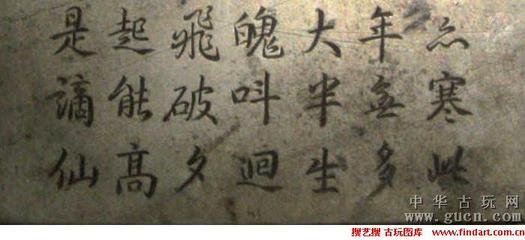 寒此
年無多
大半生
魄呌迴
飛破夕
起能高
是謫仙
中华古玩网
www.gucn.com
搜艺搜 古玩图库 www.findart.com.cn